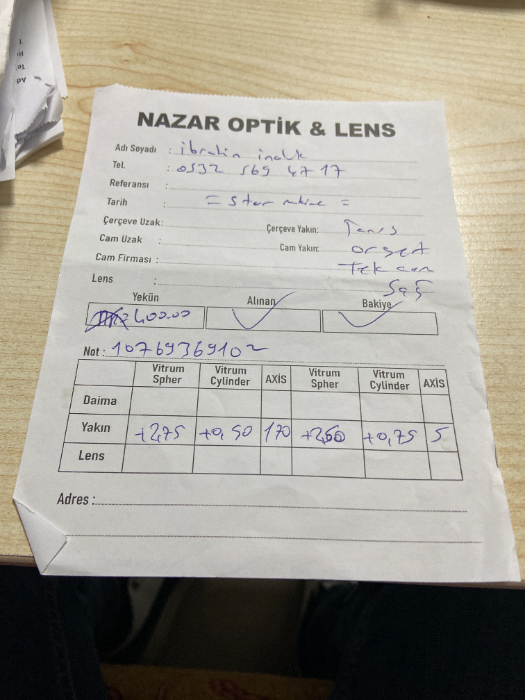 NAZAR OPTİK & LENS
Adı Soyadı : ibrahim
Tel. : 0532 569 47 17
Referansı :
Tarih : = =
Çerçeve Uzak: Çerçeve Yakın:
Cam Uzak : Cam Yakın:
Cam Firması : Tek cam
Lens : Sağ
Yekün Alınan Bakiye
400.00
Not : 10769369102
Vitrum Spher Vitrum Cylinder AXİS Vitrum Spher Vitrum Cylinder AXİS
Daima
Yakın +2,75 +0,50 170 +2,50 +0,75 5
Lens
Adres :